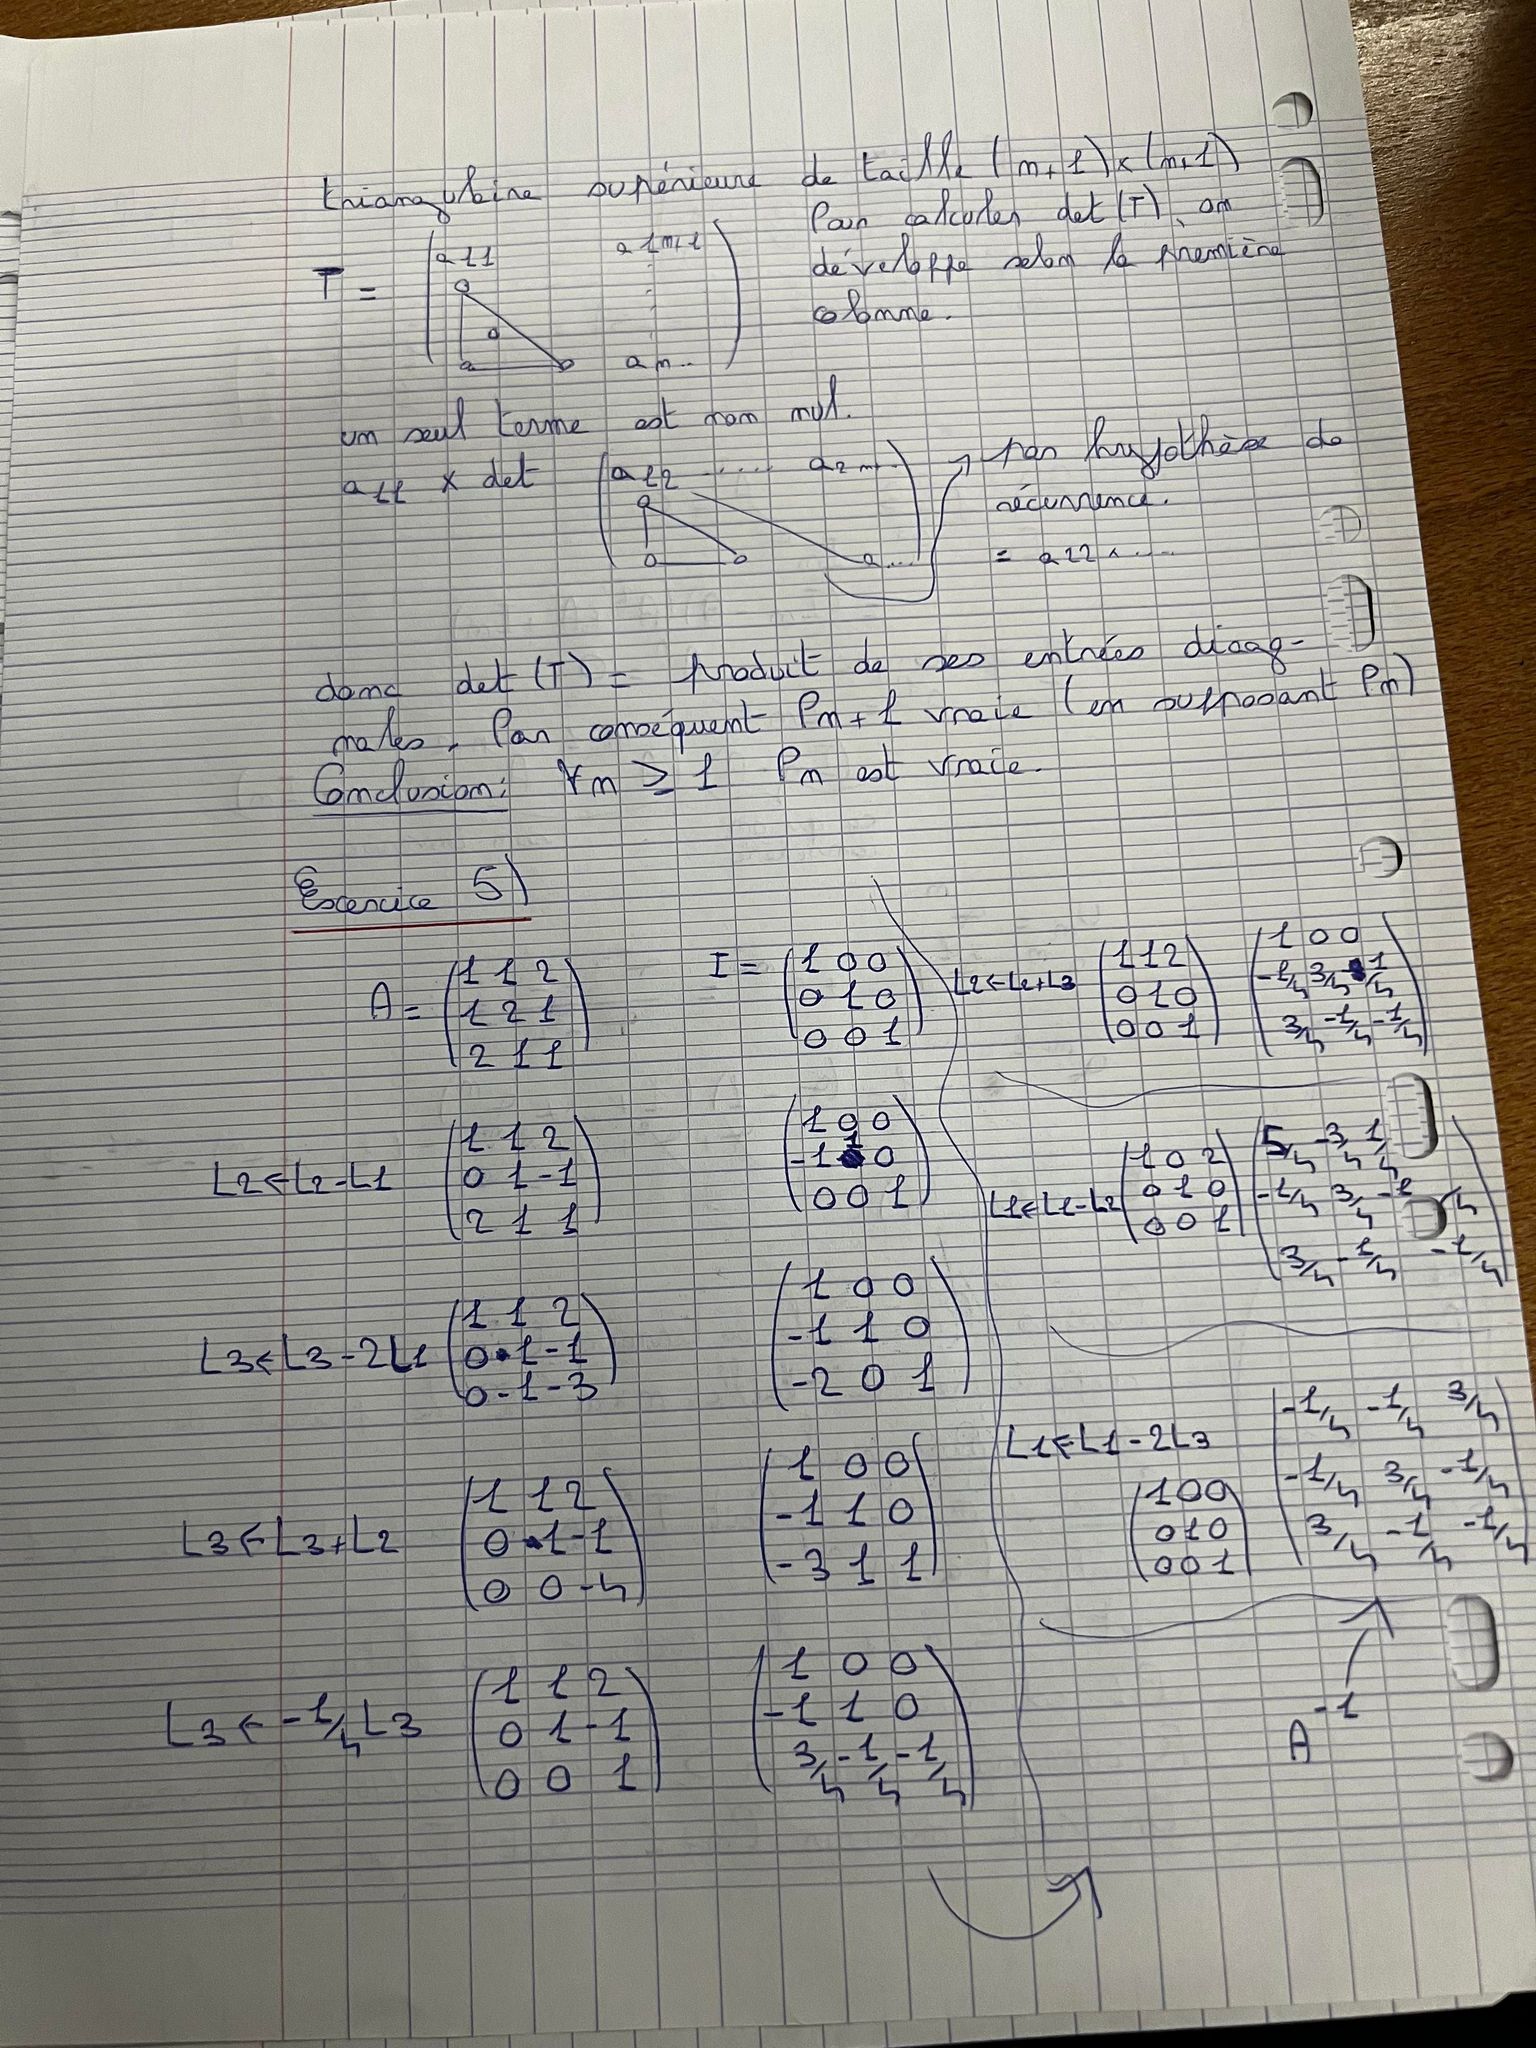 triangulaire supérieure de taille (n+1)x(n+1)
Pour calculer det(T), on
développe selon la première
colonne.
T = ( a11 a1n+1
0
0
0 0 an.. )
un seul terme est non nul.
a11 x det ( a22 ..... a2n+..
0
0 0 a... )
par hypothèse de
récurrence.
= a22 x ....
donc det(T) = produit de ses entrées diaag-
nales. Par conséquent Pn+1 vraie (en supposant Pn)
Conclusion: ∀n ≥ 1 Pn est vraie.
Exercice 5)
A = ( 1 1 2
1 2 1
2 1 1 )
I = ( 1 0 0
0 1 0
0 0 1 )
L2←L2-L1
( 1 1 2
0 1 -1
2 1 1 )
( 1 0 0
-1 1 0
0 0 1 )
L3←L3-2L1
( 1 1 2
0 1 -1
0 -1 -3 )
( 1 0 0
-1 1 0
-2 0 1 )
L3←L3+L2
( 1 1 2
0 1 -1
0 0 -4 )
( 1 0 0
-1 1 0
-3 1 1 )
L3←-1/4L3
( 1 1 2
0 1 -1
0 0 1 )
( 1 0 0
-1 1 0
3/4 -1/4 -1/4 )
L2←L2+L3
( 1 1 2
0 1 0
0 0 1 )
( 1 0 0
-1/4 3/4 -1/4
3/4 -1/4 -1/4 )
L1←L1-L2
( 1 0 2
0 1 0
0 0 1 )
( 5/4 -3/4 1/4
-1/4 3/4 -1/4
3/4 -1/4 -1/4 )
L1←L1-2L3
( 1 0 0
0 1 0
0 0 1 )
( -1/4 -1/4 3/4
-1/4 3/4 -1/4
3/4 -1/4 -1/4 )
A-1